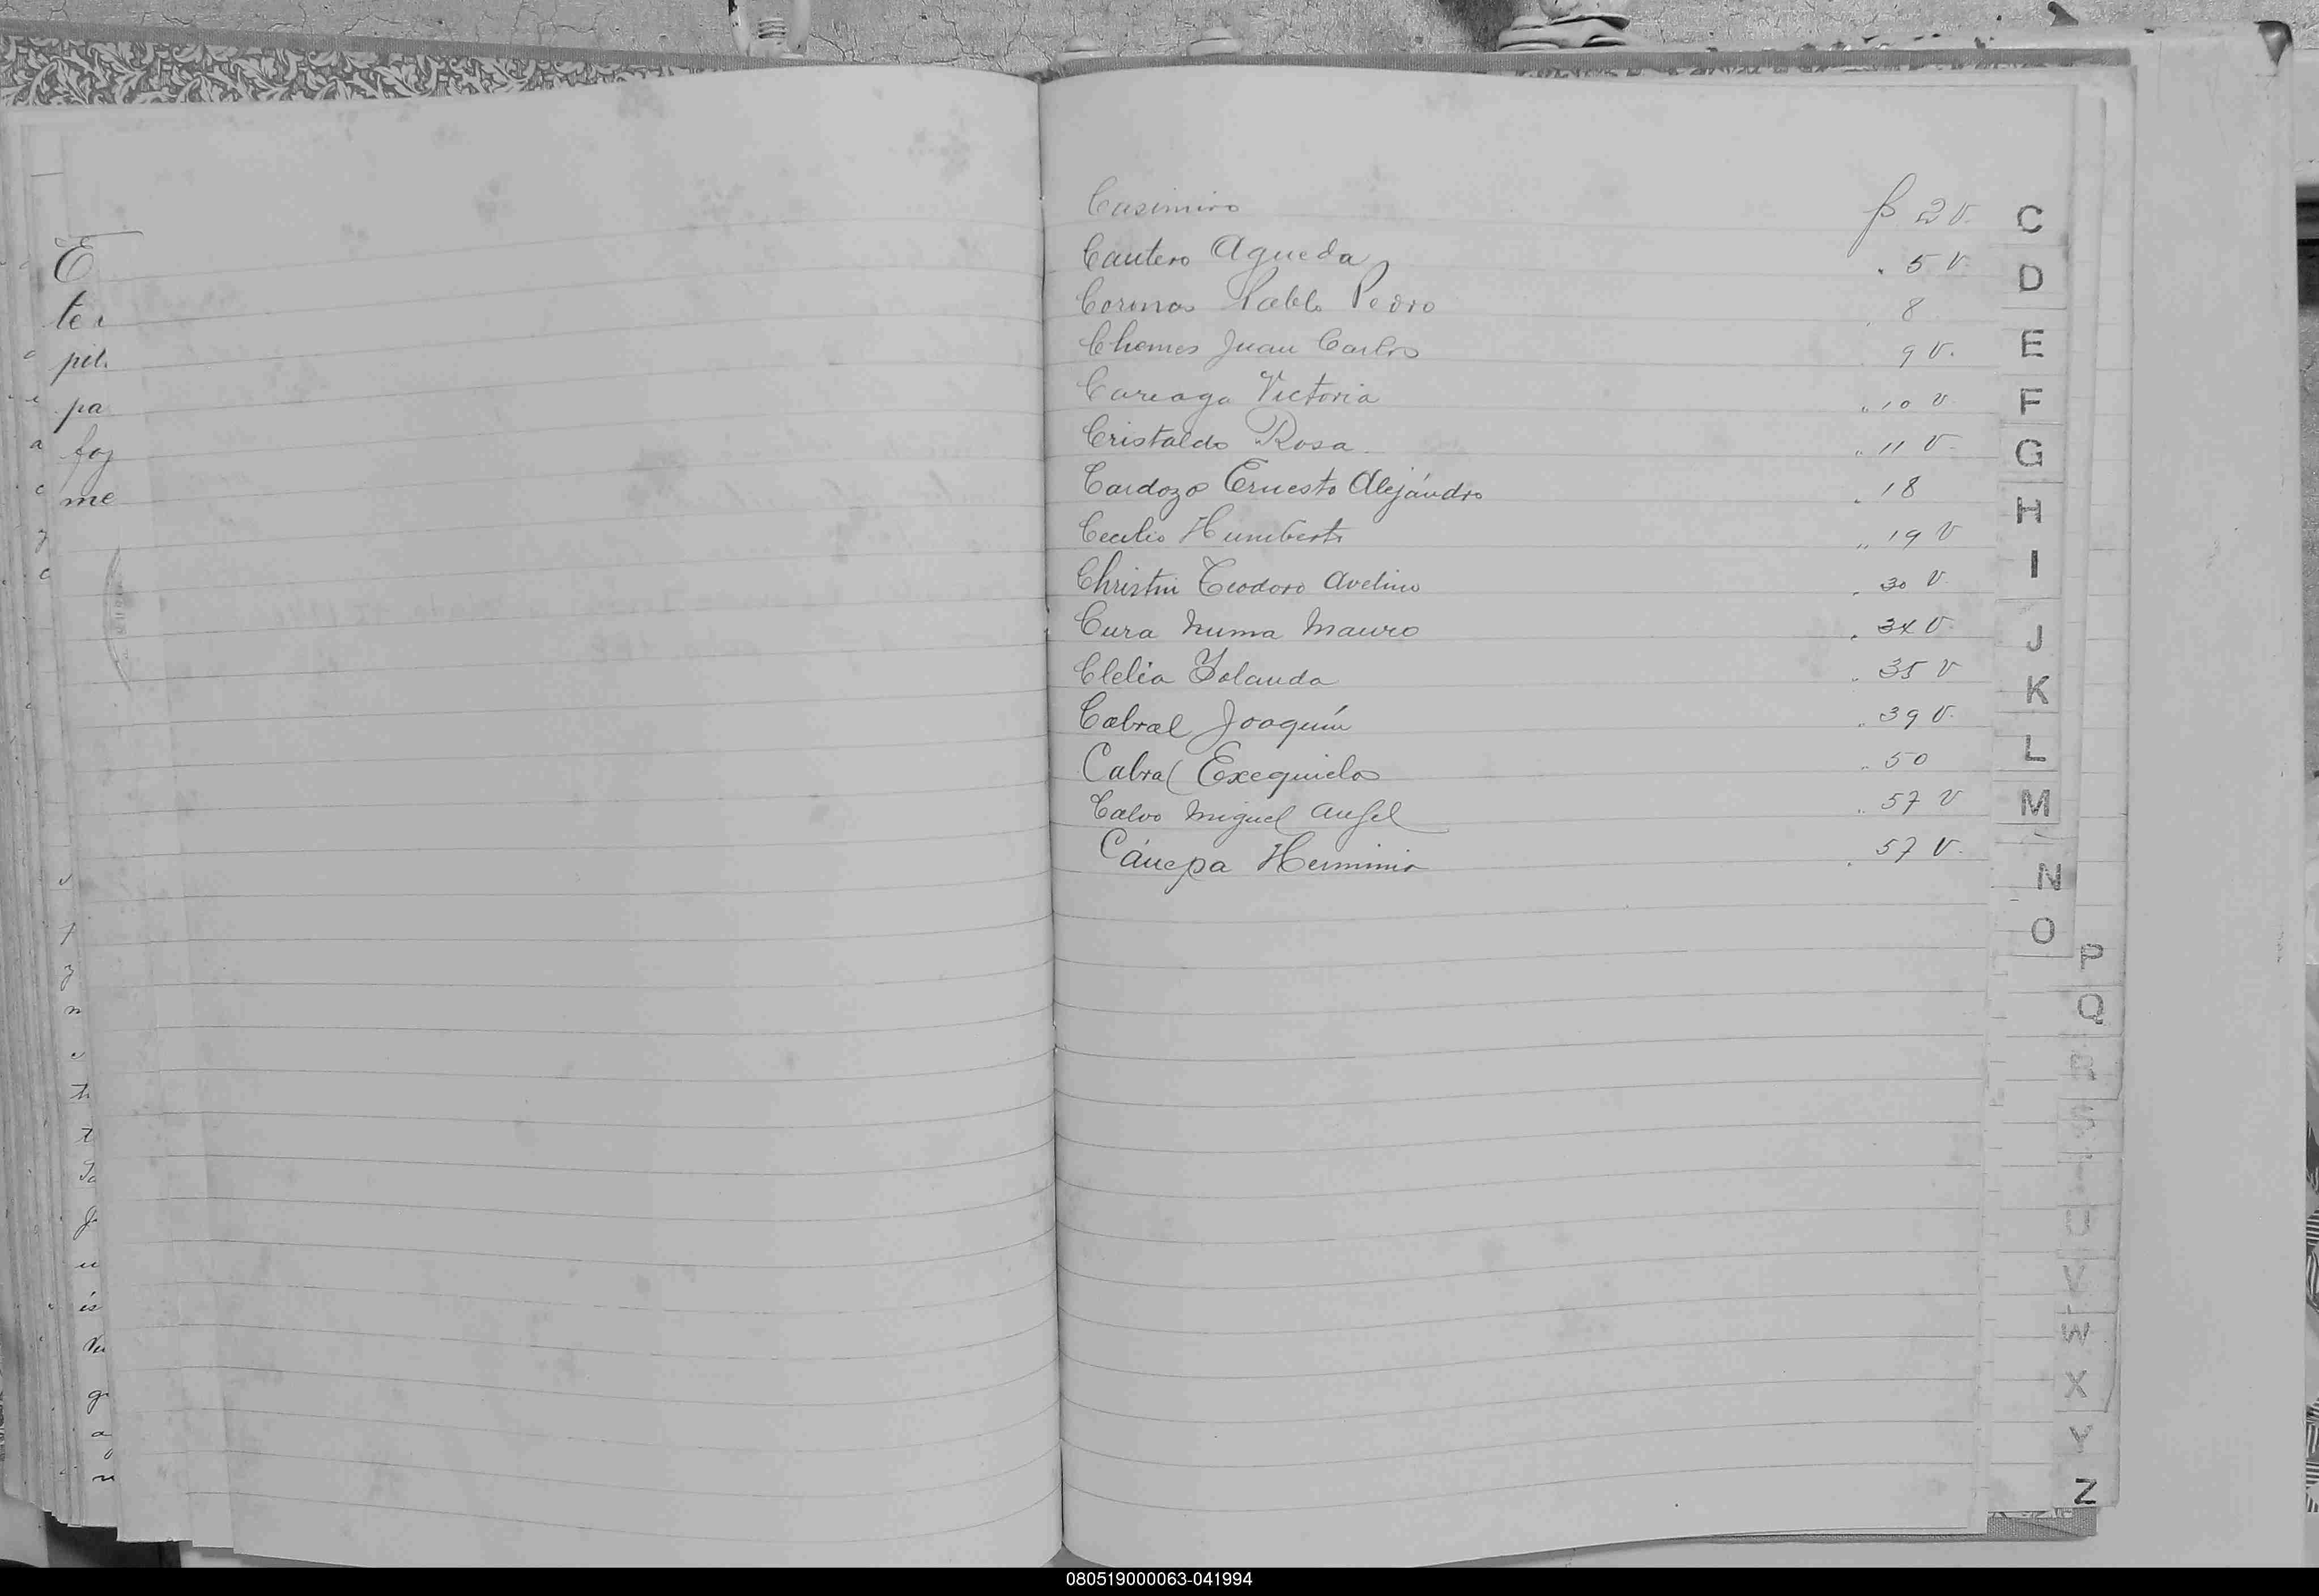 Casimiro f 2 v.
Cantero Agueda . 5 v.
Pablo Pedro 8
Chomes Juan Carlos 9 v.
Careaga Victoria " 10 v
Cristaldo Rosa " 11 v
Cardozo Ernesto Alejándro . 18
Cecilio Humberto " 19 v
Christin Teodoro Avelino . 30 v
Cura Numa Mauro . 34 v.
Clelia Yolanda . 35 v
Cabral Joaquín . 39 v.
Cabral . 50
Calvo Miguel Angel . 57 v
Cánepa Herminia . 57 v.
C
D
E
F
G
H
I
J
K
L
M
N
O
P
Q
R
S
T
U
V
W
X
Y
Z
E
te
pa
foj
me
080519000063-041994